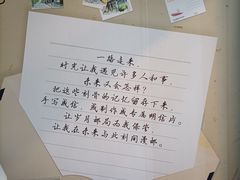 一路走来，
时光让我遇见许多人和事，
未来又会怎样？
把这些利骨的记忆留存下来，
手写成信，或制作成专属明信片。
让岁月邮局为我保管，
让我在未来与此刻间漫邮。